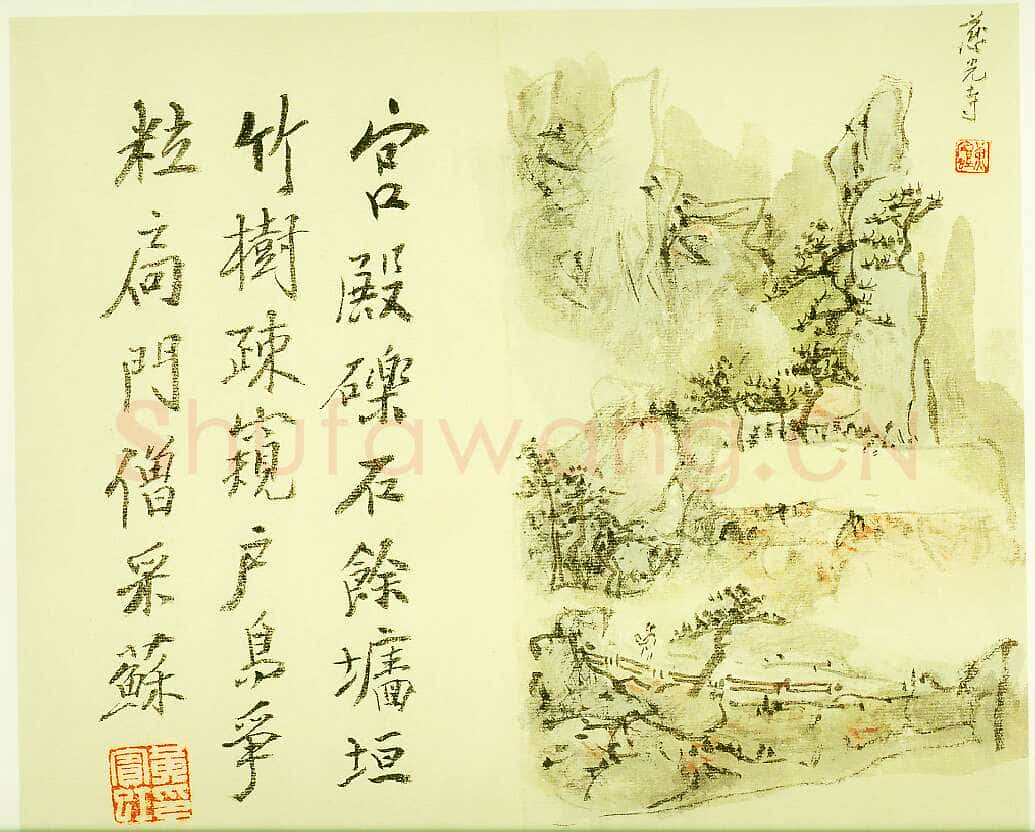 慈光寺
宮殿礫石餘墉垣
竹樹疎窺户鳥爭
粒扃門僧采蘇
Shufawang.CN